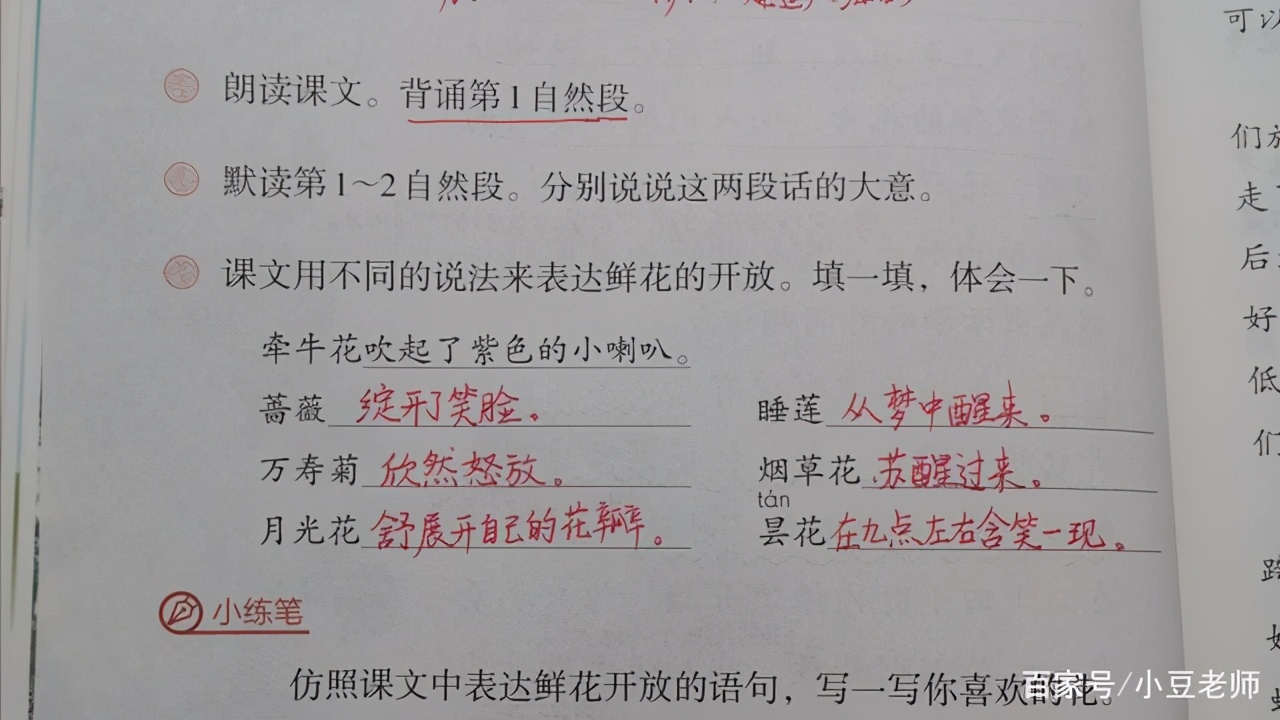 朗读课文。背诵第1自然段。
默读第1～2自然段。分别说说这两段话的大意。
课文用不同的说法来表达鲜花的开放。填一填，体会一下。
牵牛花吹起了紫色的小喇叭。
蔷薇 绽开了笑脸。 睡莲 从梦中醒来。
万寿菊 欣然怒放。 烟草花 苏醒过来。
tán
月光花 舒展开自己的花瓣。 昙花 在九点左右含笑一现。
小练笔
仿照课文中表达鲜花开放的语句，写一写你喜欢的花。
百家号/小豆老师
可以
们
走
后
好
低
们